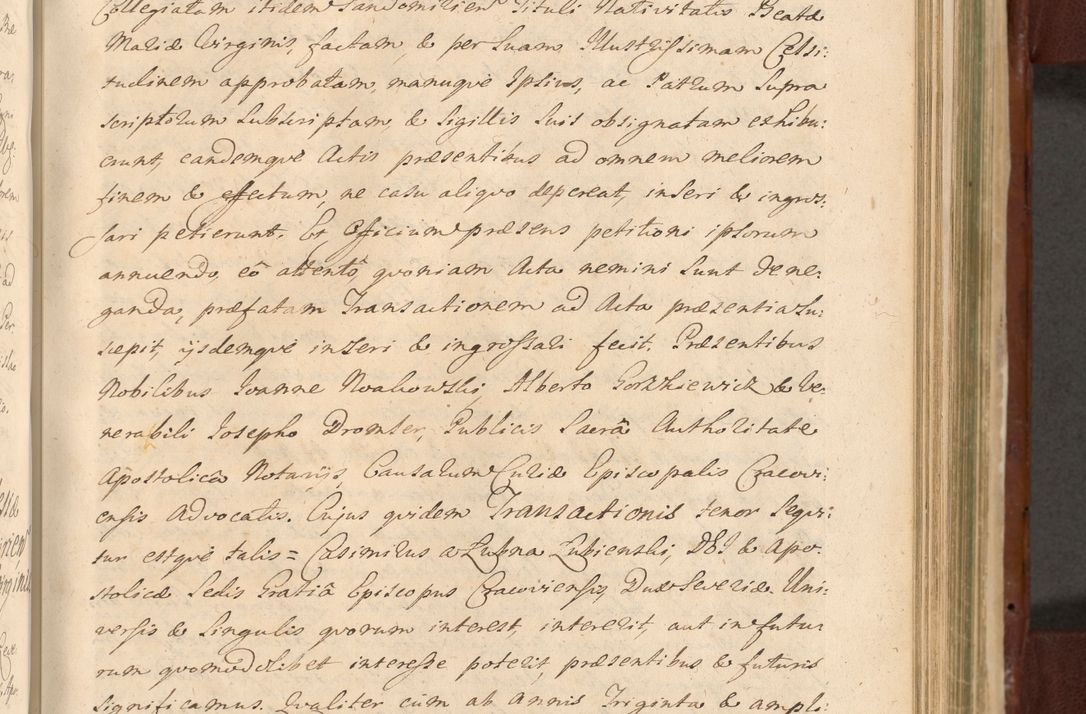 Collegiatam itidem Sandomirien Tituli Nativitatis Beatæ
Mariæ Virginis, factam, & per Suam Illustrissimam Celsi:
tudinem approbatam, manuqve Ipsius, ac Patrum Supra
scriptorum Subscriptam, & Sigillis Suis obsignatam exhibu:
erunt, eandemqve Actis præsentibus ad omnem meliorem
finem & effectum, ne casu aliqvo depereat, inseri & ingros:
sari petierunt. Et Officium præsens petitioni ipsorum
annuendo, eô attentô qvoniam Acta nemini Sunt dene:
ganda, præfatam Transactionem ad Acta præsentia Su:
scepit, ijsdemqve inseri & ingrossari fecit. Præsentibus
Nobilibus Joanne Noakowski, Alberto Gorzkiewicz & Ve:
nerabili Josepho Dromler, Publicis Sacrâ Authoritate
Apostolicâ Notarijs, Causarum Curiæ Episcopalis Cracovi:
ensis Advocatis. Cujus qvidem Transactionis tenor Seqvi:
tur estqve talis = Casimirus a Łubna Łubienski, DEI & Apo:
stolicæ Sedis Gratiâ Episcopus Cracoviensis, Dux Severiæ. Uni:
versis & Singulis qvorum interest, intererit, aut in futu:
rum qvomodolibet interesse poterit, præsentibus & futuris
Significamus. Qvaliter cum ab Annis Triginta & ampli: